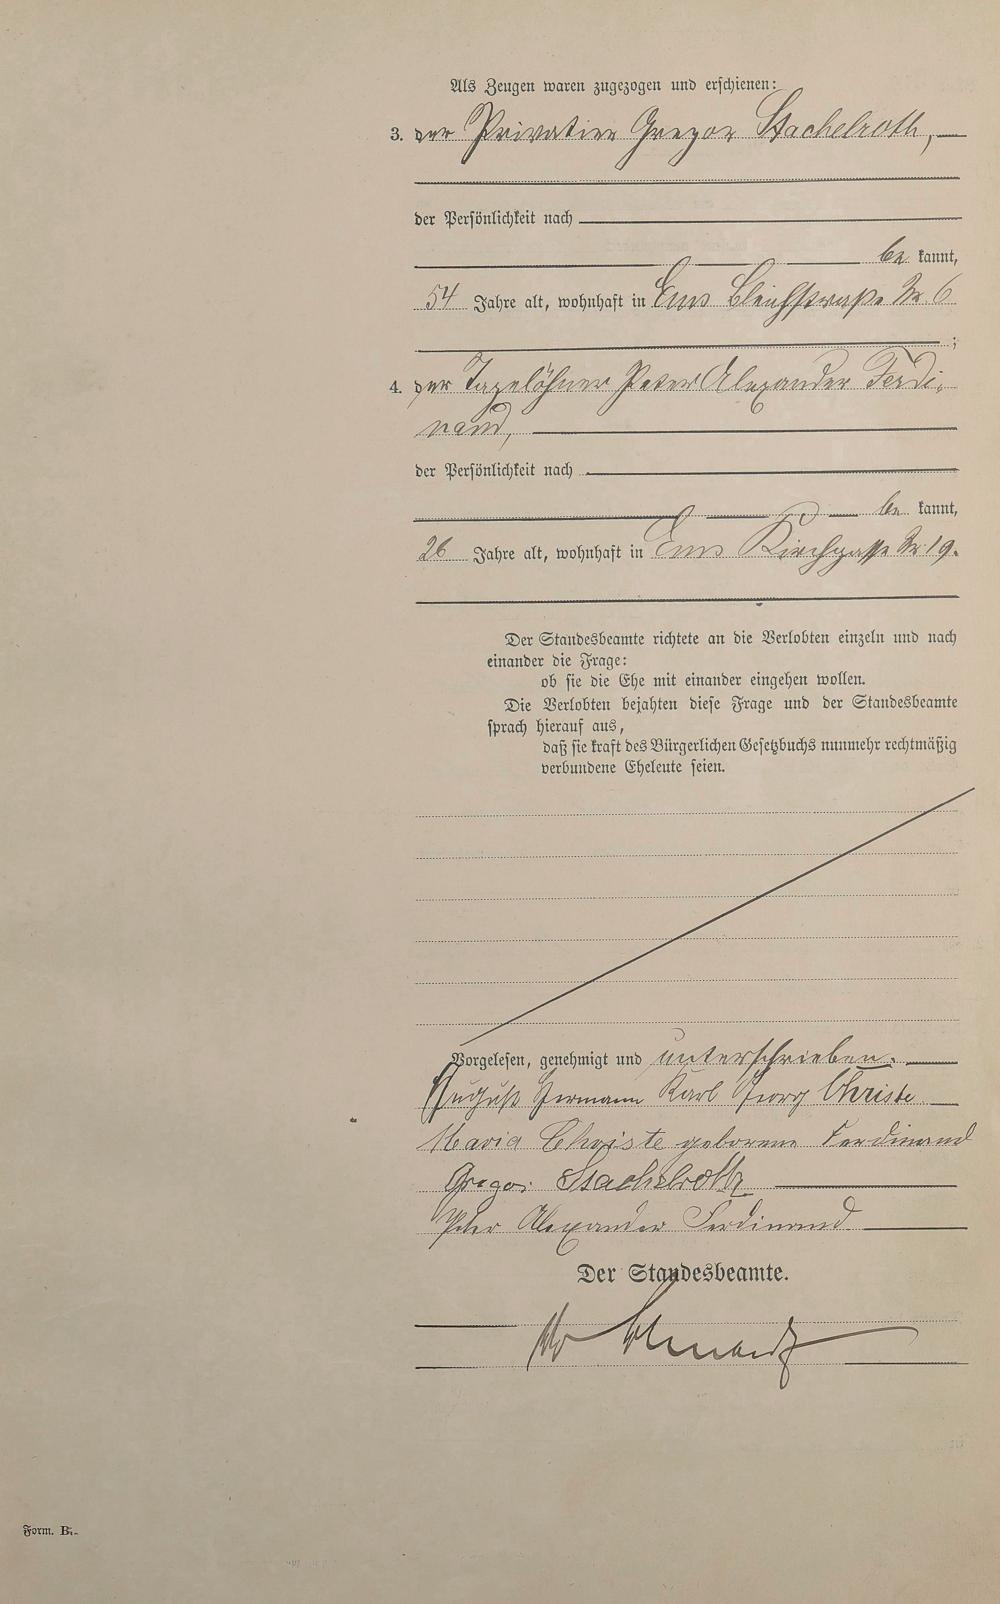 Als Zeugen waren zugezogen und erschienen:
3. der Privatier Gregor Stachelroth,
der Persönlichkeit nach
be kannt,
54 Jahre alt, wohnhaft in Ems Bleichstraße Nr 6
;
4. der Tagelöhner Peter Alexander Ferdi-
nand,
der Persönlichkeit nach
be kannt,
26 Jahre alt, wohnhaft in Ems Kirchgasse Nr 19.
Der Standesbeamte richtete an die Verlobten einzeln und nach
einander die Frage:
ob sie die Ehe mit einander eingehen wollen.
Die Verlobten bejahten diese Frage und der Standesbeamte
sprach hierauf aus,
daß sie kraft des Bürgerlichen Gesetzbuchs nunmehr rechtmäßig
verbundene Eheleute seien.
Vorgelesen, genehmigt und unterschrieben.
August Hermann Karl Georg Christe
Maria Christe geborene Ferdinand
Gregor Stachelroth
Peter Alexander Ferdinand
Der Standesbeamte.
Form. B.